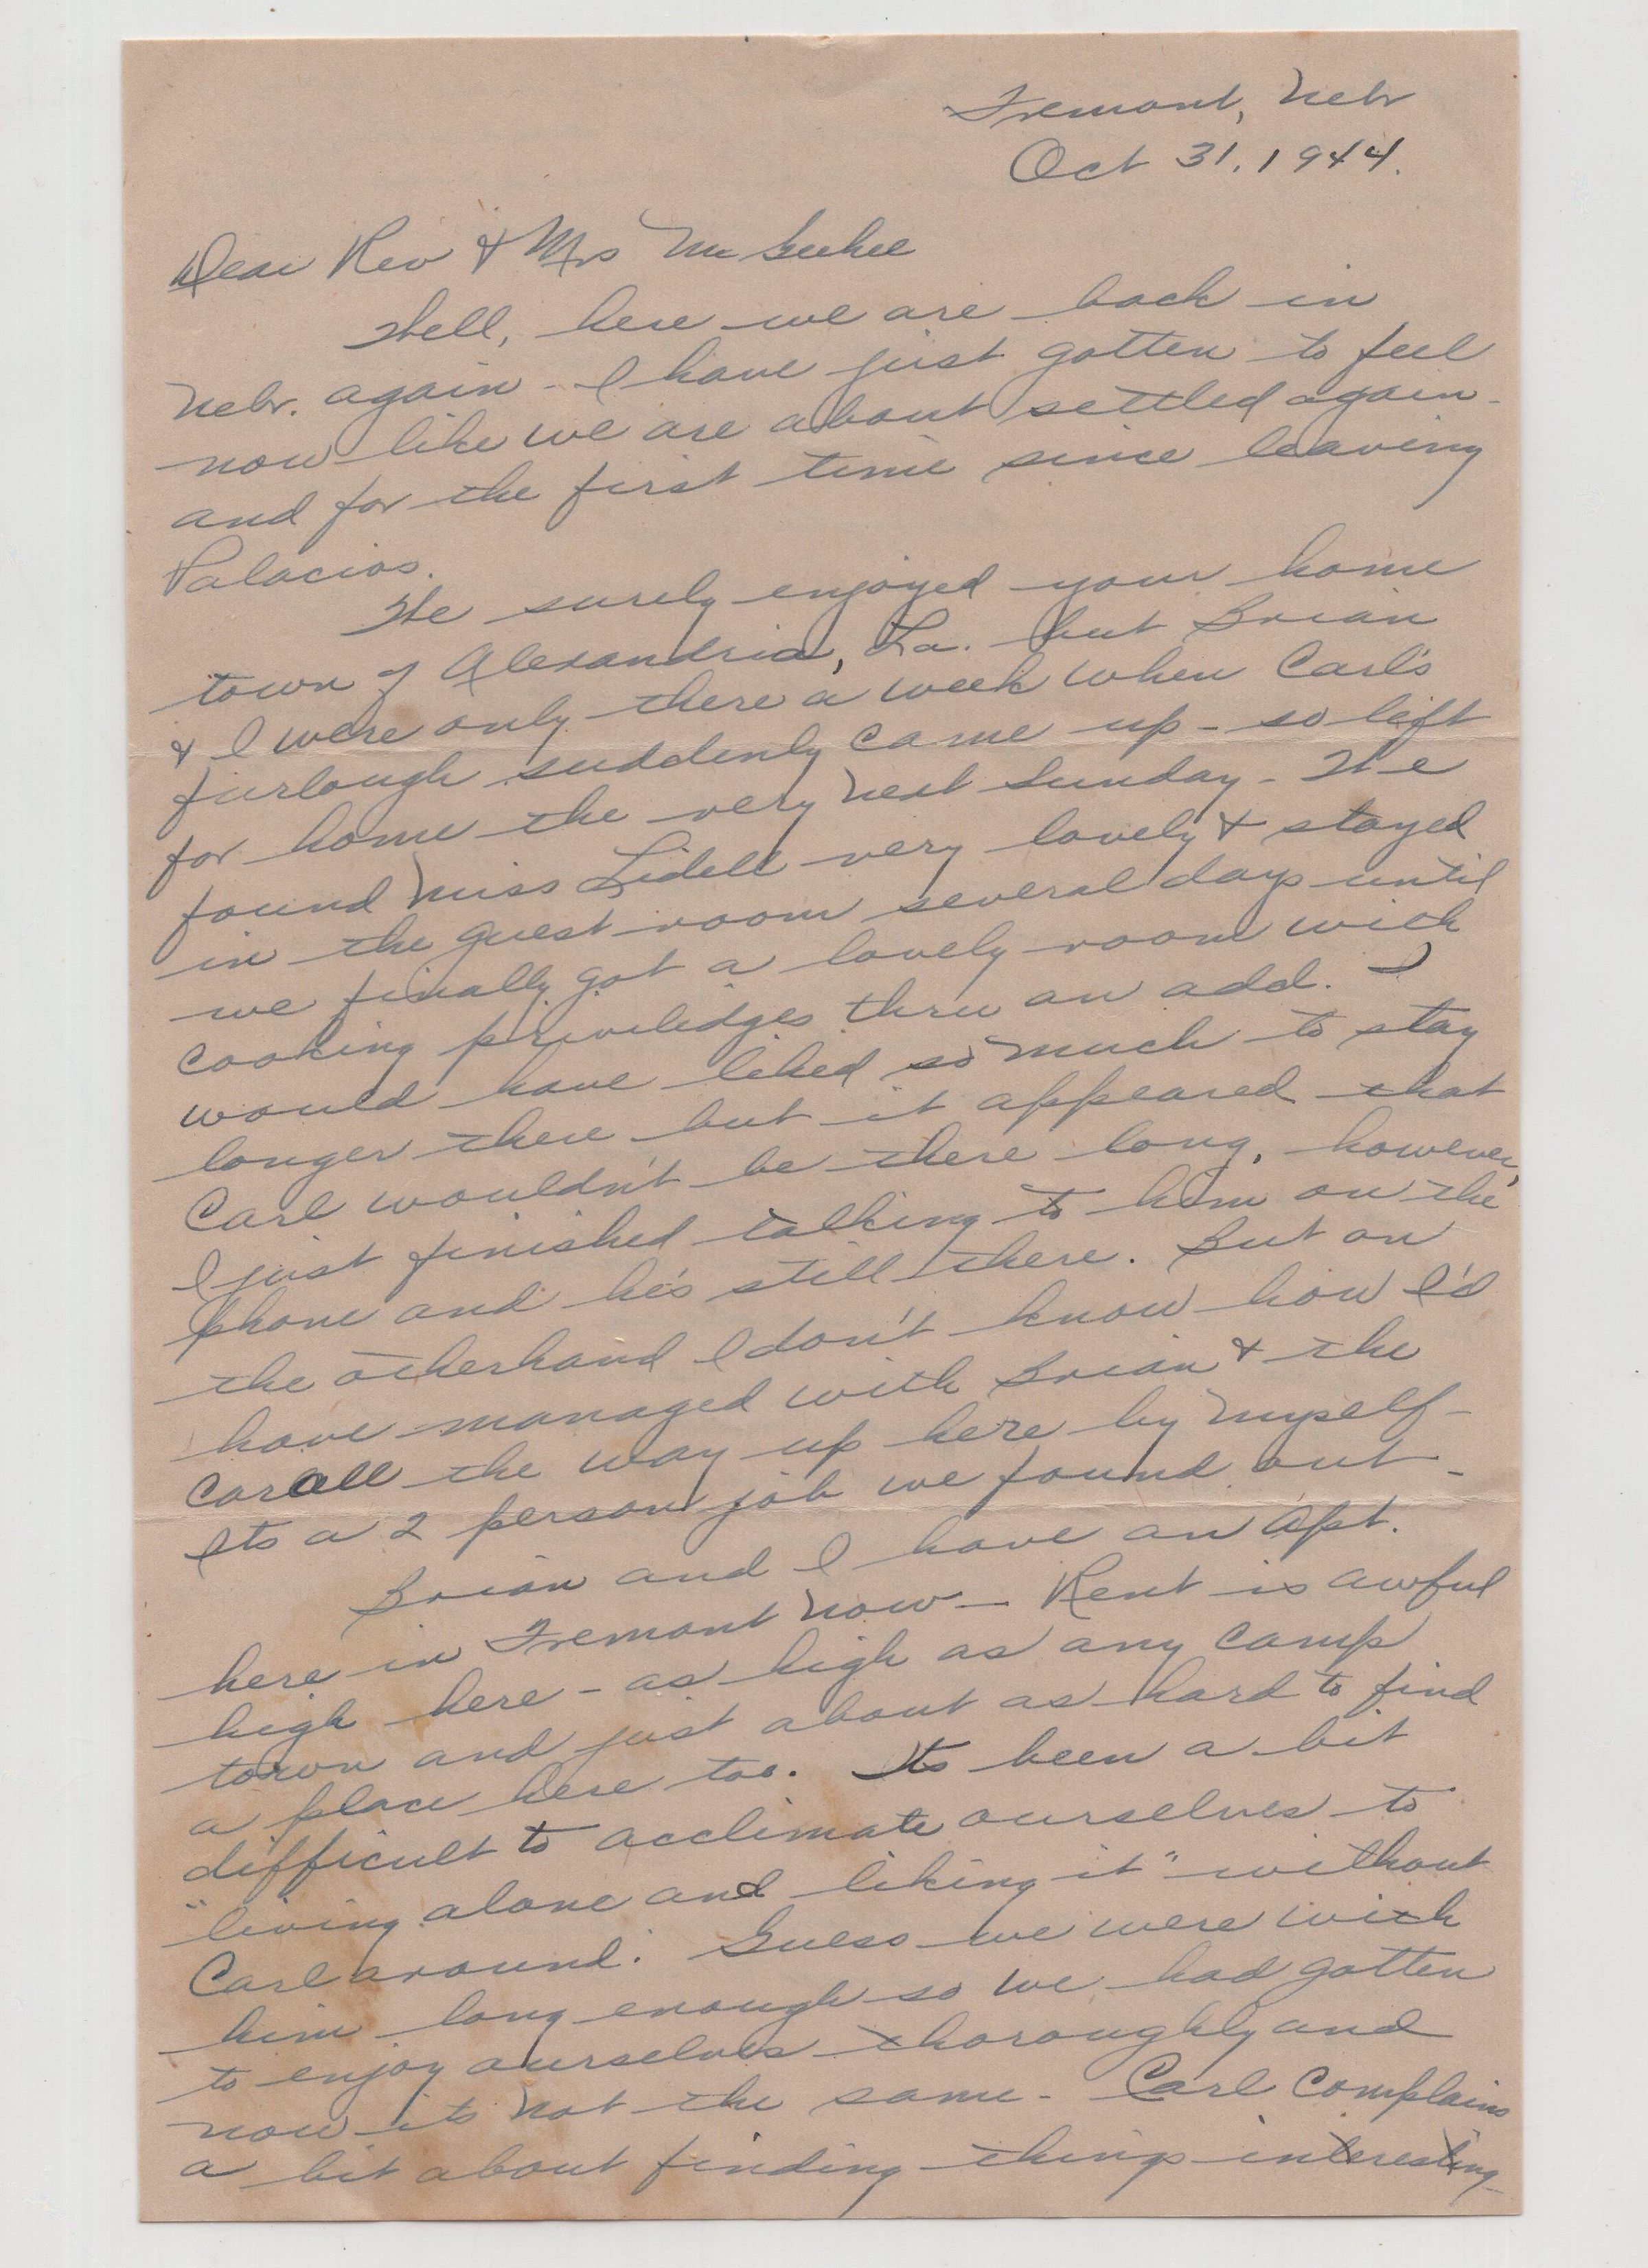 Fremont, Nebr
Oct 31, 1944.
Dear Rev & Mrs McGeehee
Well, here we are back in
Nebr. again - I have just gotten to feel
now like we are about settled again -
and for the first time since leaving
Palacios.
We surely enjoyed your home
town of Alexandria, La. but Brian
& I were only there a week when Carl's
furlough suddenly came up - so left
for home the very next Sunday - We
found Miss Lidell very lovely & stayed
in the guest room several days until
we finally got a lovely room with
cooking priviledges thru an add. I
would have liked so much to stay
longer there but it appeared that
Carl wouldn't be there long, however,
I just finished talking to him on the
phone and he's still there. But on
the otherhand I don't know how I'd
have managed with Brian & the
car all the way up here by myself -
Its a 2 person job we found out -
Brian and I have an Apt.
here in Fremont now - Rent is awful
high here - as high as any camp
town and just about as hard to find
a place here too. Its been a bit
difficult to acclimate ourselves to
"living alone and liking it" without
Carl around. Guess we were with
him long enough so we had gotten
to enjoy ourselves thoroughly and
now its not the same - Carl complains
a bit about finding things interesting -